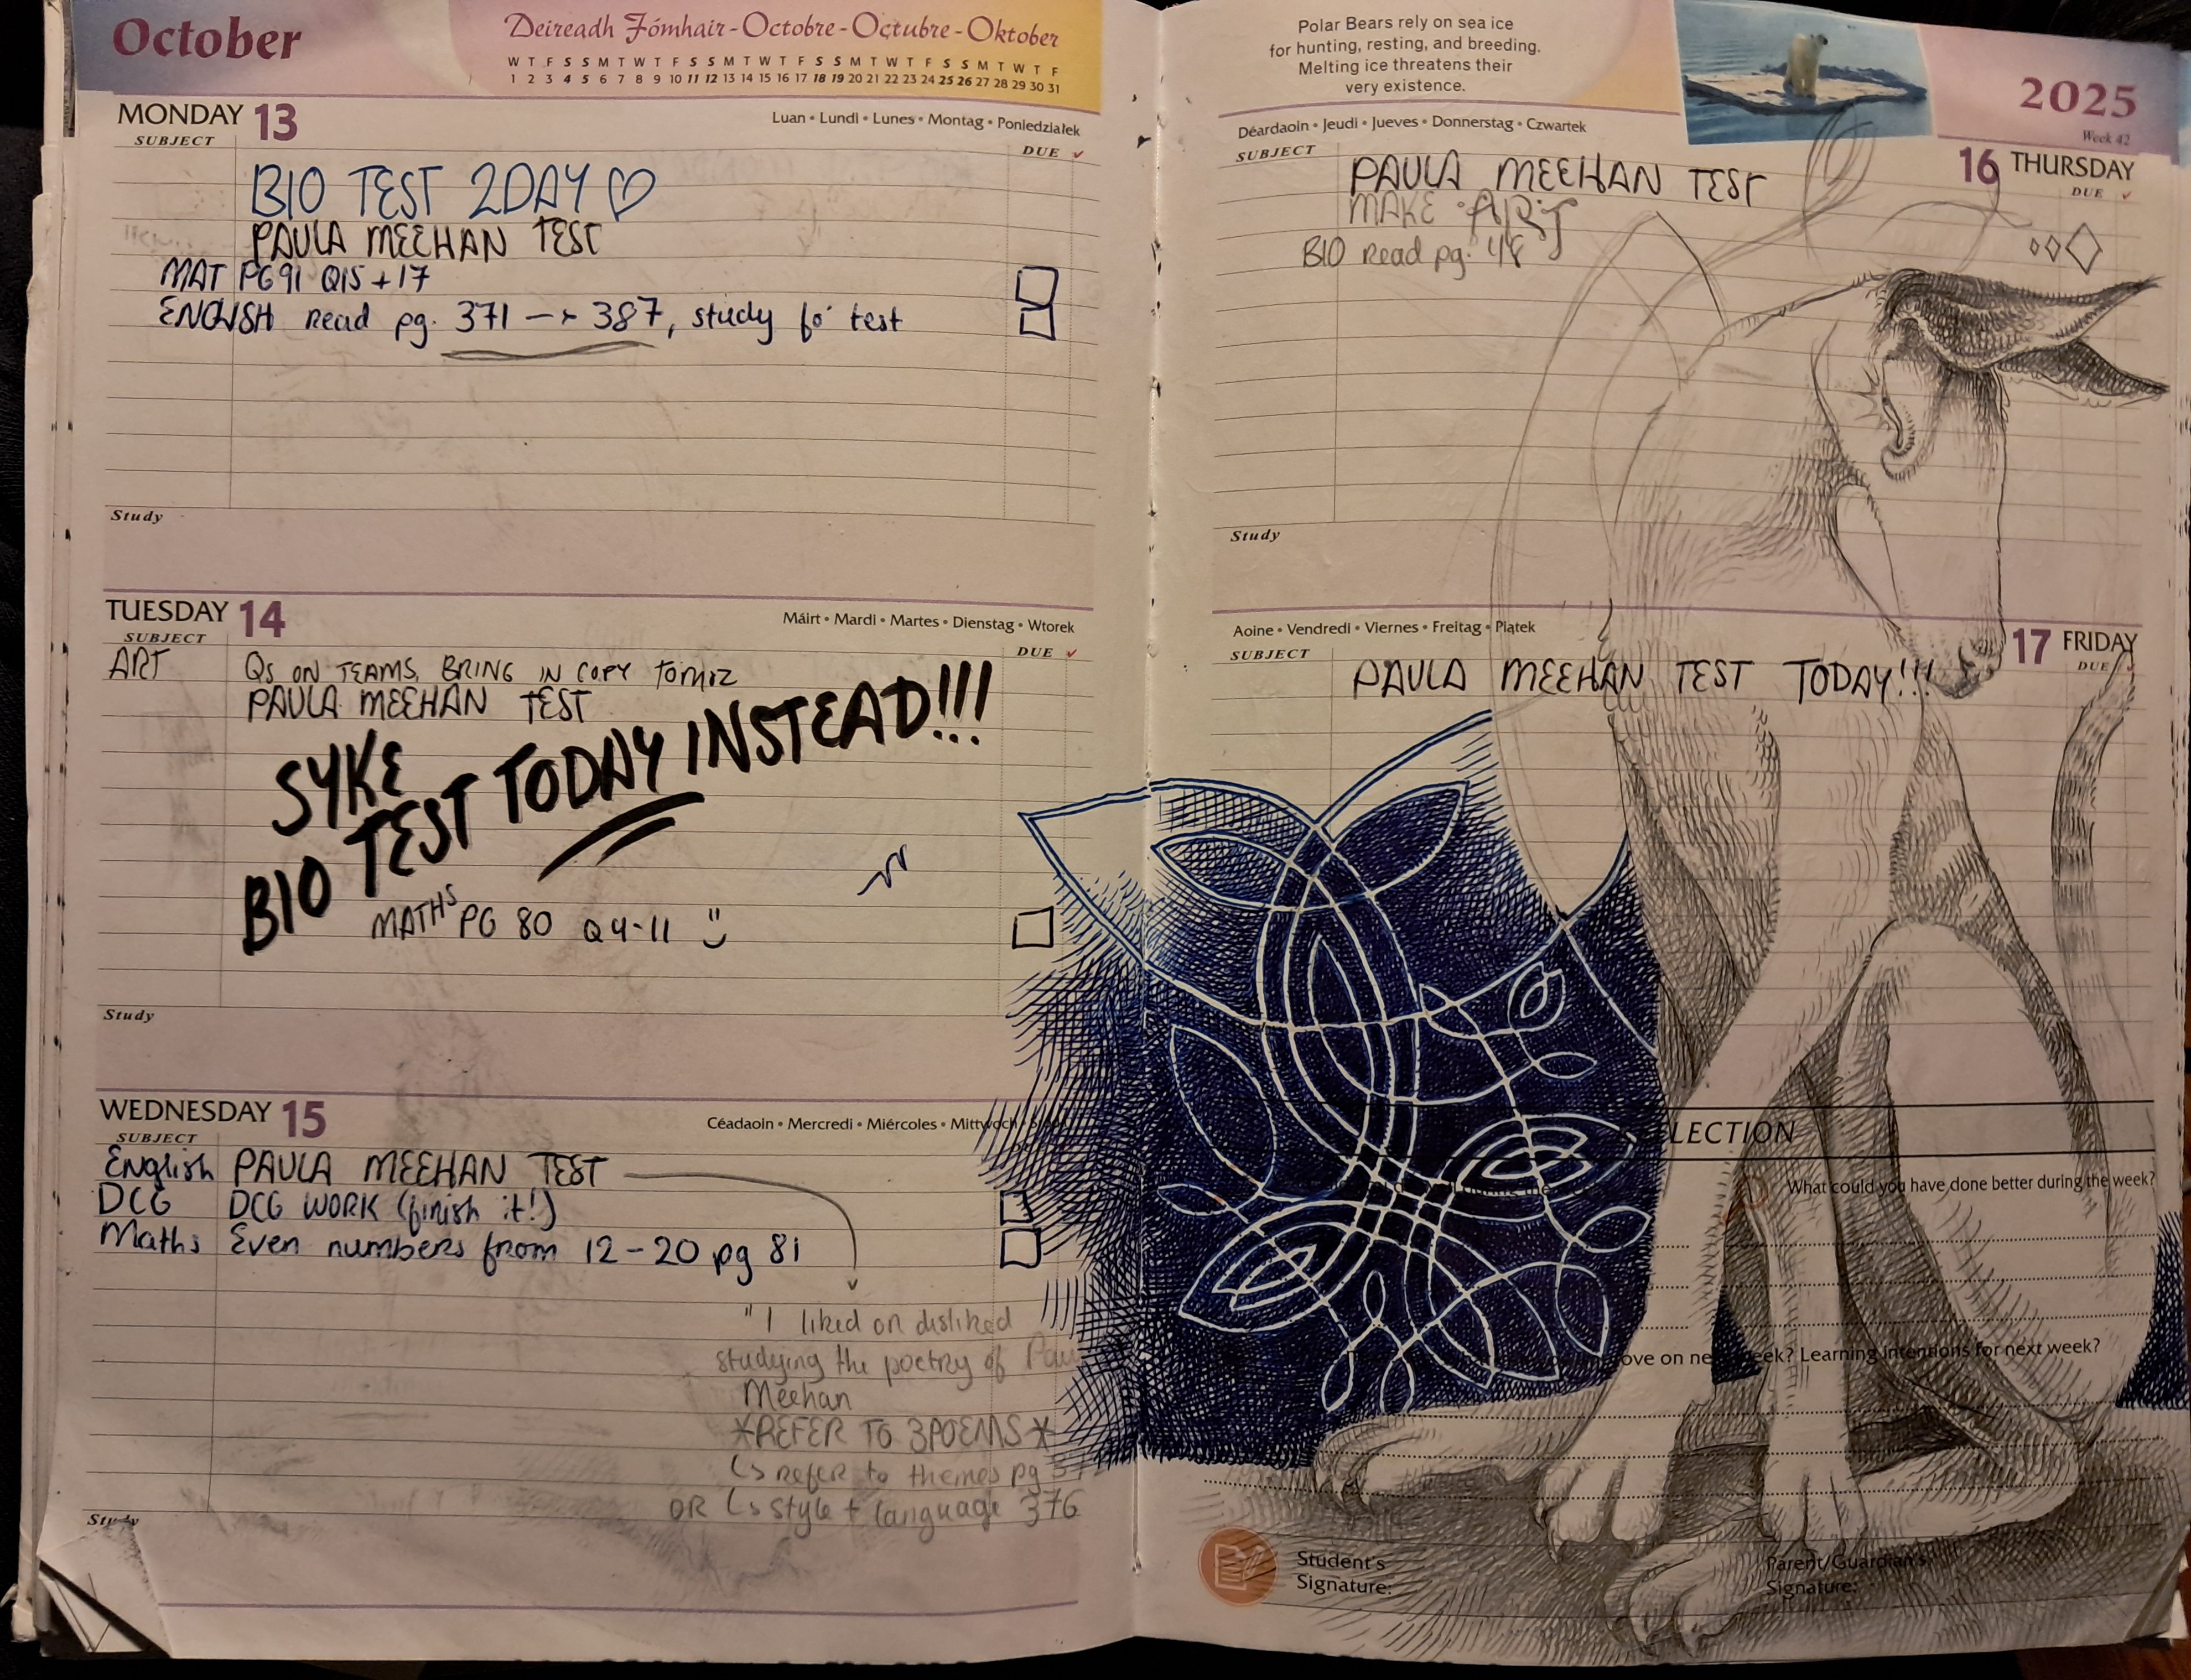 October
Deireadh Fómhair - Octobre - Octubre - Oktober
W T F S S M T W T F S S M T W T F S S M T W T F S S M T W T F
1 2 3 4 5 6 7 8 9 10 11 12 13 14 15 16 17 18 19 20 21 22 23 24 25 26 27 28 29 30 31
MONDAY 13
Luan • Lundi • Lunes • Montag • Poniedziałek
SUBJECT
DUE ✓
BIO TEST 2DAY ♡
PAULA MEEHAN TEST
MAT PG 91 Q15 + 17
ENGLISH read pg. 371 → 387, study fo' test
Study
TUESDAY 14
Máirt • Mardi • Martes • Dienstag • Wtorek
SUBJECT
DUE ✓
ART Qs ON TEAMS, BRING IN COPY TOMOZ
PAULA MEEHAN TEST
SYKE
BIO TEST TODAY INSTEAD!!!
MATHS PG 80 Q4-11
Study
WEDNESDAY 15
Céadaoin • Mercredi • Miércoles • Mittwoch
SUBJECT
English PAULA MEEHAN TEST
DCG DCG WORK (finish it!)
Maths Even numbers from 12-20 pg 81
"I liked or disliked
studying the poetry of
Meehan
*REFER TO 3 POEMS*
↳ refer to themes pg
OR ↳ style + language 376
Study
Polar Bears rely on sea ice
for hunting, resting, and breeding.
Melting ice threatens their
very existence.
2025
Week 42
Déardaoin • Jeudi • Jueves • Donnerstag • Czwartek
16 THURSDAY
SUBJECT
DUE ✓
PAULA MEEHAN TEST
MAKE ART
BIO Read pg. 48
Study
Aoine • Vendredi • Viernes • Freitag • Piątek
17 FRIDAY
SUBJECT
DUE
PAULA MEEHAN TEST TODAY!!!
LECTION
What could you have done better during the week?
ove on next week? Learning intentions for next week?
Student's
Signature:
Parent/Guardian's
Signature: